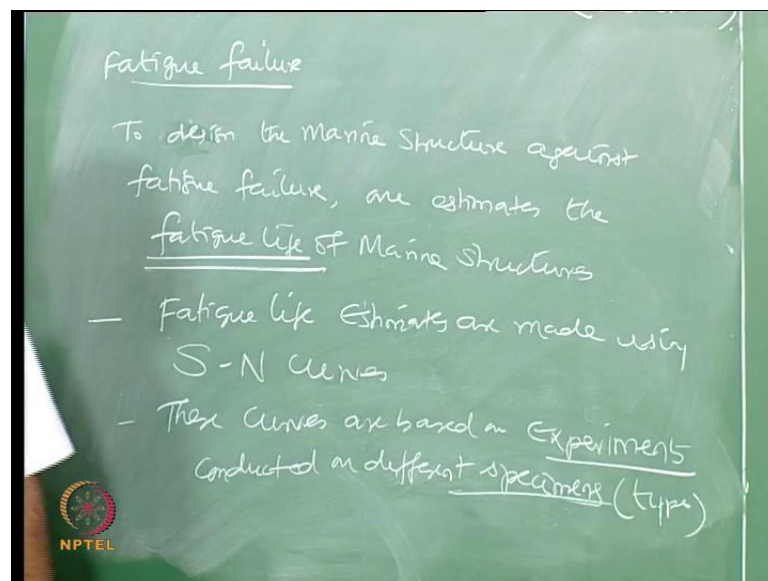 Fatigue failure
To design the Marine Structure against
fatigue failure, one estimates the
fatigue life of Marine Structures
— Fatigue life Estimates are made using
S-N curves
- These curves are based on Experiments
conducted on different specimens (type)
NPTEL